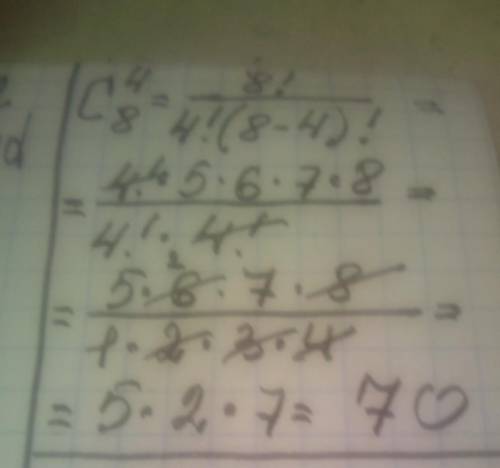 C₈⁴ = 8! / 4!(8-4)! =
= 4! · 5 · 6 · 7 · 8 / 4! · 4! =
= 5 · 6² · 7 · 8 / 1 · 2 · 3 · 4 =
= 5 · 2 · 7 = 70